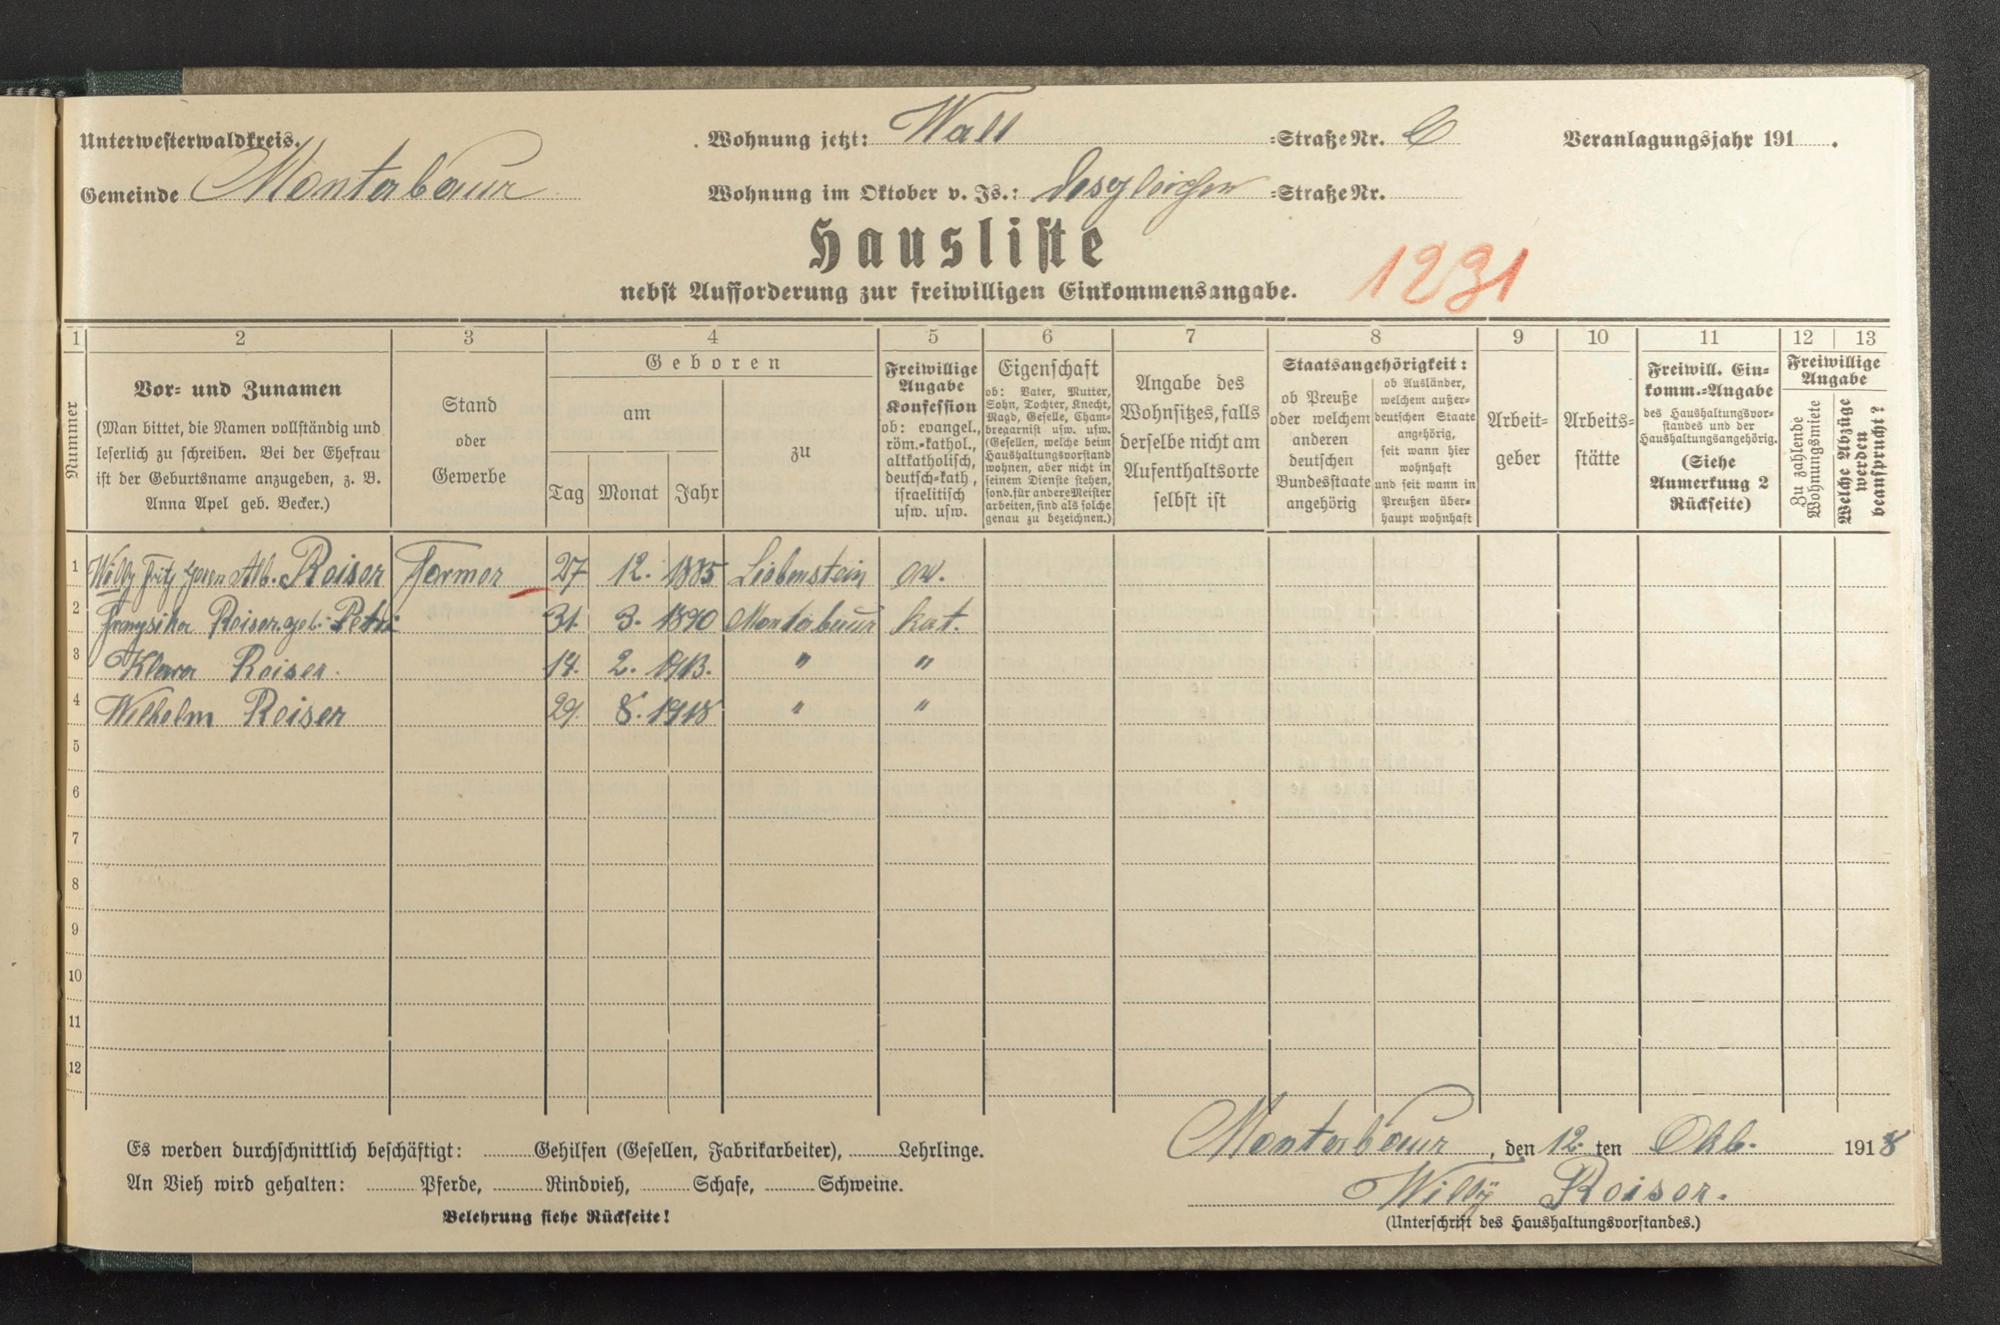 Unterwesterwaldkreis.
Gemeinde Montabaur
Wohnung jetzt: Wall =Straße Nr. 6
Wohnung im Oktober v. Js.: desgleichen =Straße Nr.
Veranlagungsjahr 191 .
Hausliste
nebst Aufforderung zur freiwilligen Einkommensangabe.
1231
1 2 3 4 5 6 7 8 9 10 11 12 13
Nummer
Vor- und Zunamen
(Man bittet, die Namen vollständig und
leserlich zu schreiben. Bei der Ehefrau
ist der Geburtsname anzugeben, z. B.
Anna Apel geb. Becker.)
Stand
oder
Gewerbe
Geboren
am
Tag Monat Jahr
zu
Freiwillige
Angabe
Konfession
ob: evangel.,
röm.-kathol.,
altkatholisch,
deutsch-kath,
israelitisch
usw. usw.
Eigenschaft
ob: Vater, Mutter,
Sohn, Tochter, Knecht,
Magd, Geselle, Cham-
bregarnist usw. usw.
(Gesellen, welche beim
Haushaltungsvorstand
wohnen, aber nicht in
seinem Dienste stehen,
sond. für andere Meister
arbeiten, sind als solche
genau zu bezeichnen.)
Angabe des
Wohnsitzes, falls
derselbe nicht am
Aufenthaltsorte
selbst ist
Staatsangehörigkeit:
ob Preuße
oder welchem
anderen
deutschen
Bundesstaate
angehörig
ob Ausländer,
welchem außer-
deutschen Staate
angehörig,
seit wann hier
wohnhaft
und seit wann in
Preußen über-
haupt wohnhaft
Arbeit-
geber
Arbeits-
stätte
Freiwill. Ein-
komm.-Angabe
des Haushaltungsvor-
standes und der
Haushaltungsangehörig.
(Siehe
Anmerkung 2
Rückseite)
Freiwillige
Angabe
Zu zahlende
Wohnungsmiete
Welche Abzüge
werden
beansprucht?
1 Willy Fritz Alb. Reiser Former 27 12. 1885 Liebenstein ev.
2 Franziska Reiser geb. Petri 31. 3. 1890 Montabaur kat.
3 Klara Reiser. 14. 2. 1913. " "
4 Wilhelm Reiser 29. 8. 1918 " "
5
6
7
8
9
10
11
12
Es werden durchschnittlich beschäftigt: Gehilfen (Gesellen, Fabrikarbeiter), Lehrlinge.
An Vieh wird gehalten: Pferde, Rindvieh, Schafe, Schweine.
Belehrung siehe Rückseite!
Montabaur, den 12. ten Okb. 1918
Willÿ Reiser.
(Unterschrift des Haushaltungsvorstandes.)